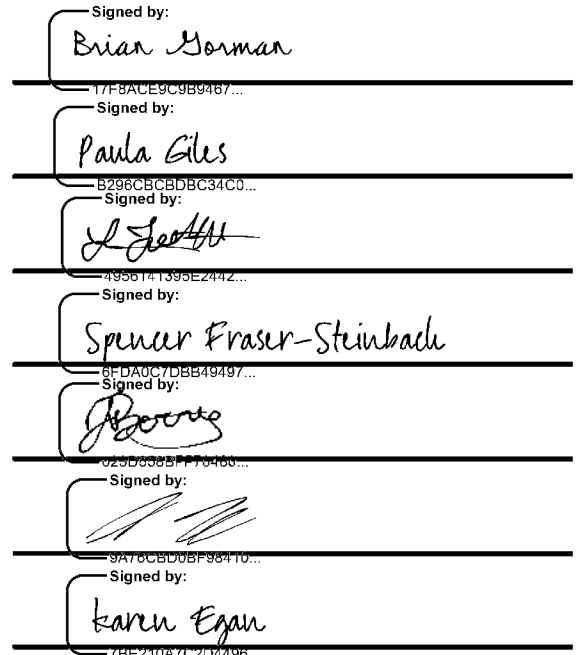 Signed by:
Brian Gorman
17F8ACE9C9B9467...
Signed by:
Paula Giles
B296CBCBDBC34C0...
Signed by:
4956141395E2442...
Signed by:
Spencer Fraser-Steinbach
6FDA0C7DBB49497...
Signed by:
Signed by:
9A76CBD0BF98410...
Signed by:
Karen Egan
7BE210A7C2D4496...